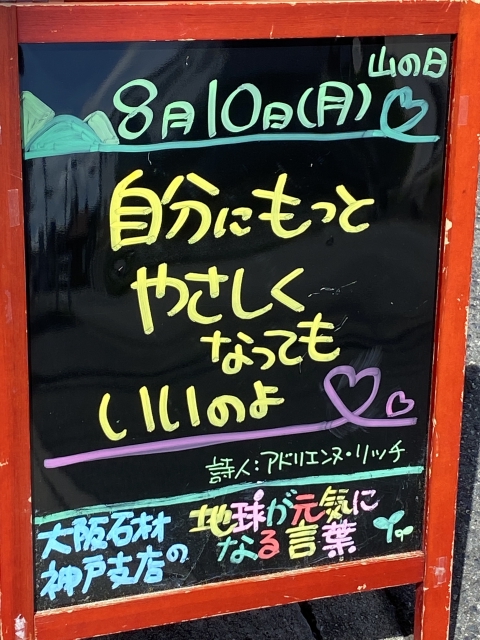 山の日
8月10日(月)
自分にもっと
やさしく
なっても
いいのよ
詩人:アドリエンヌ・リッチ
大阪石材
神戸支店の
地球が元気に
なる言葉